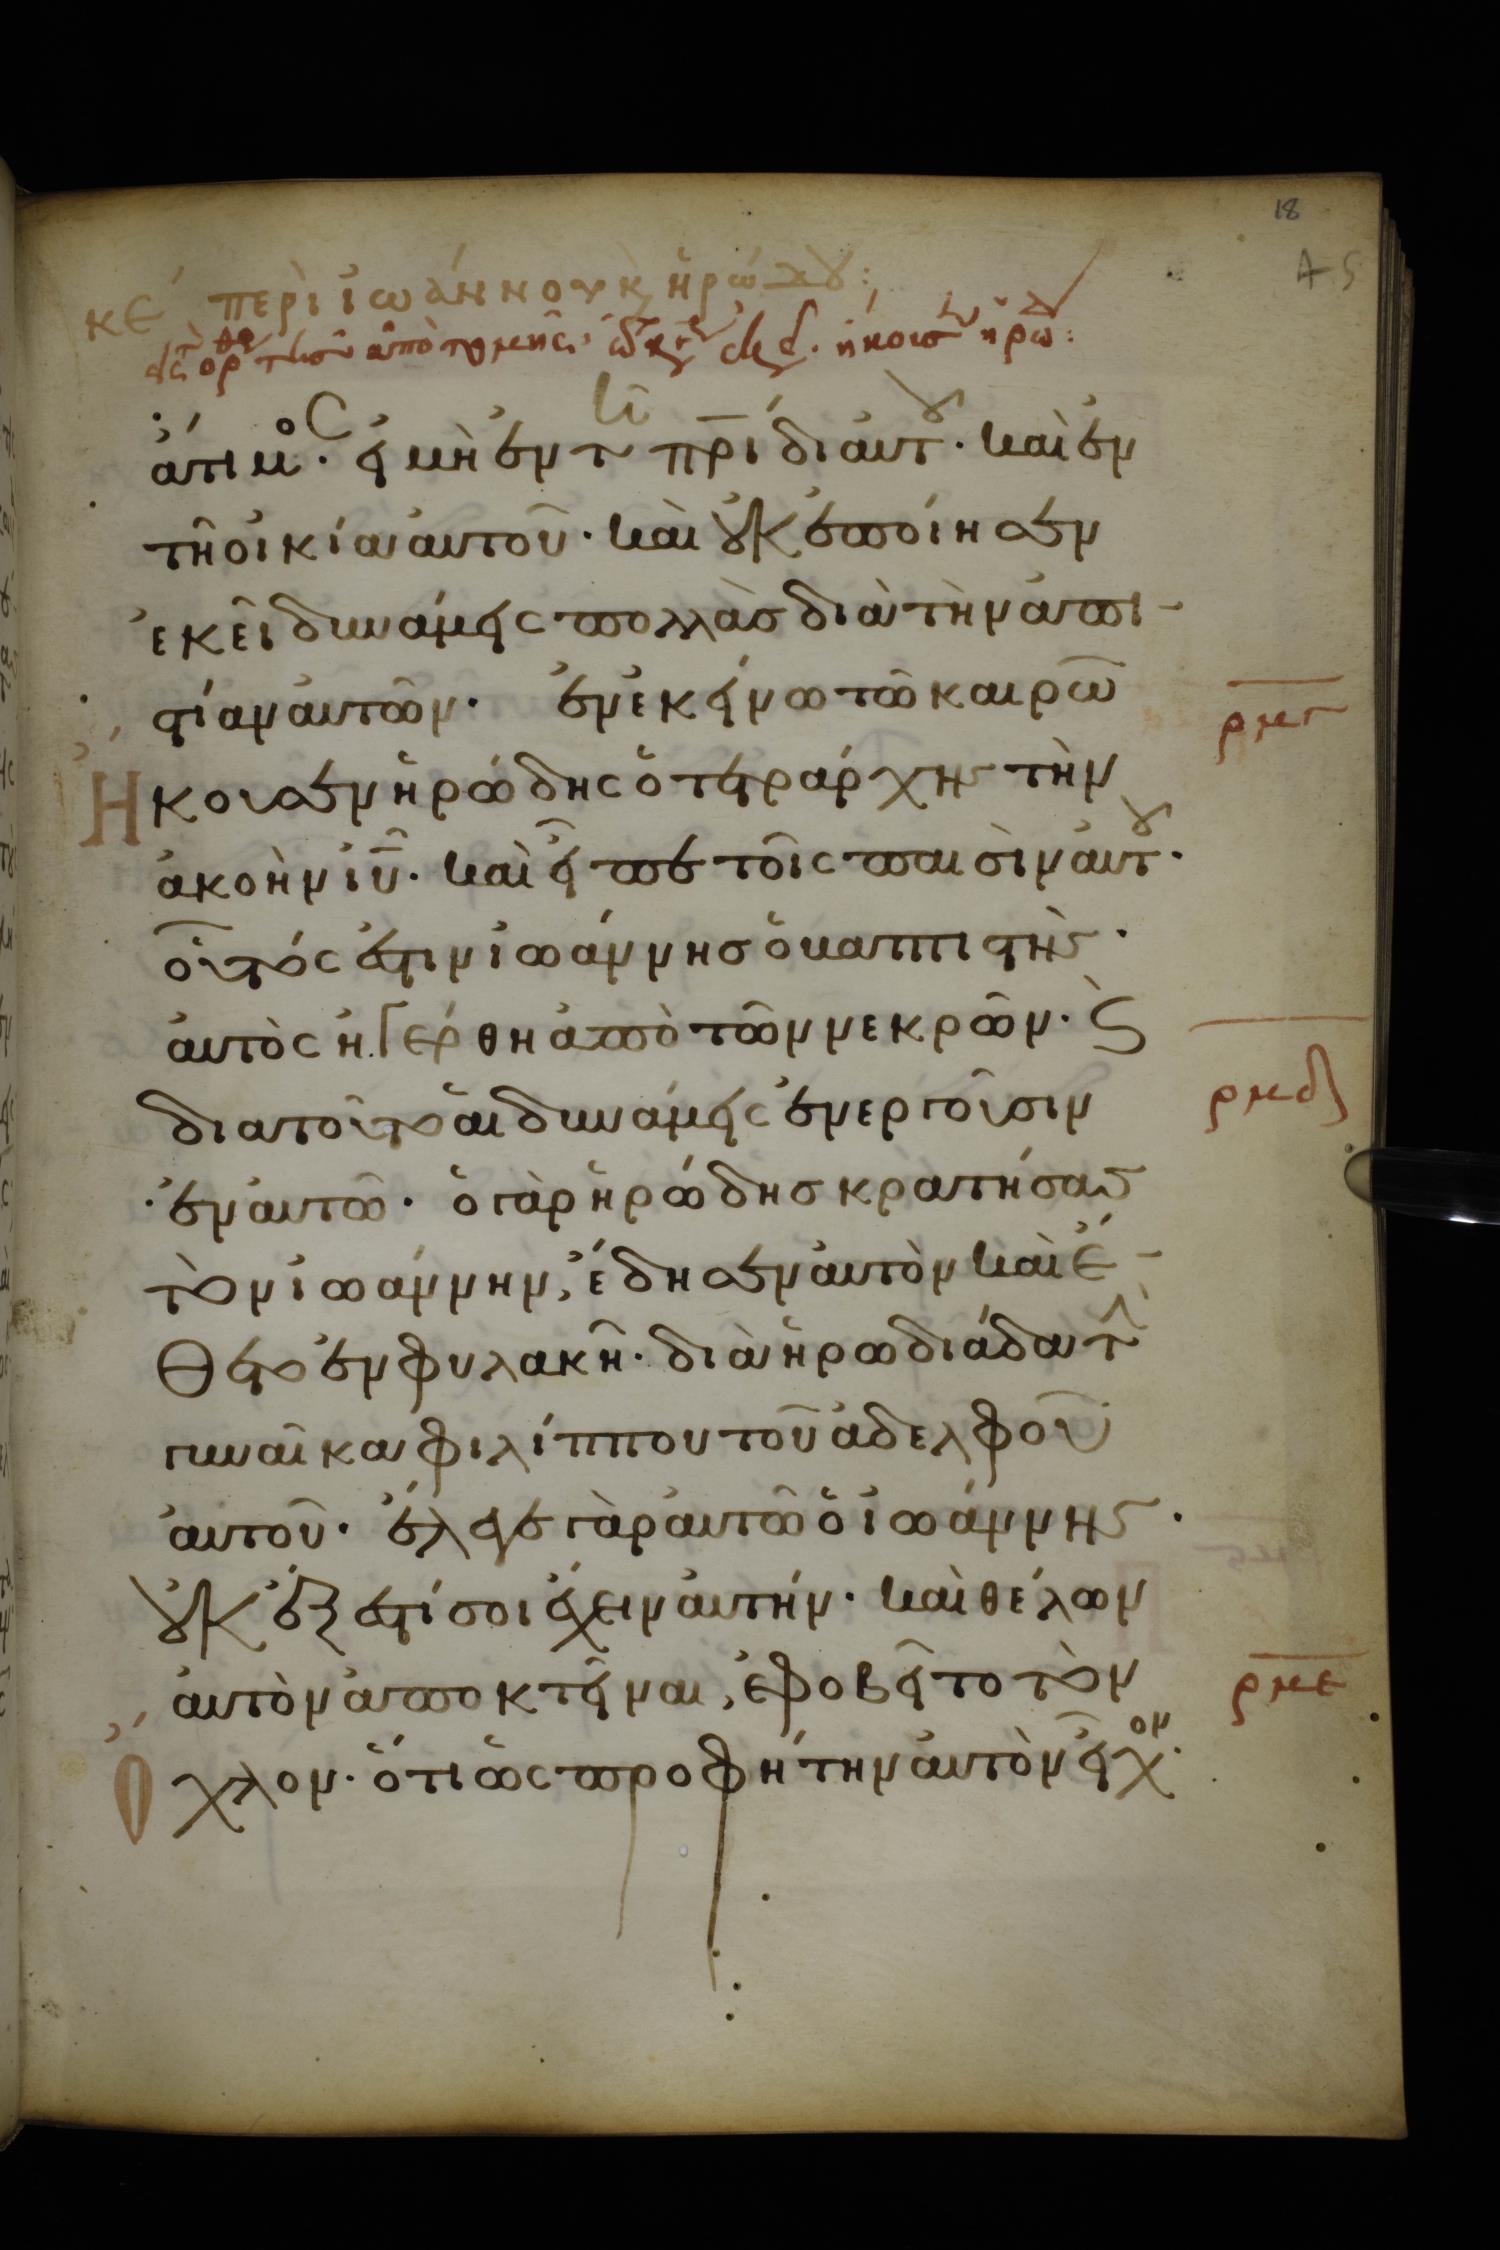 18
κε περὶ ἰωάννου κ ἡρώδου:
ἄτιμος. εἰ μὴ ἐν τῆ πρίδι αυτου. καὶ ἐν
τῆ οἰκία αυτοῦ. καὶ οὐκ ἐποίησεν
ἐκεῖ δυνάμεις πολλὰς διὰ τὴν ἀπι-
στίαν αυτῶν. ἐν εκείνω τῶ καιρῶ
Ήκουσεν ἡρώδης ὁ τετραρχης τὴν
ἀκοὴν ιυ. καὶ εἶπε τοῖς παισὶν αυτου.
οὗτός ἐστιν ἰωάννης ὁ βαπτιστὴς.
ἀυτὸς ἠγέρθη ἀπὸ τῶν νεκρῶν. Ϛ
ρμγ
διατοῦτο ἁι δυνάμεις ἐνεργοῦσιν
ρμδ
ἐν αυτῶ. ὁ γὰρ ἡρώδης κρατήσας
τὸν ἰωάννην, ἔδησεν αυτὸν καὶ ἔ-
θετο ἐν φυλακῆ. διὰ ἡρωδιάδα τὴν
γυναῖκα φιλίππου τοῦ ἀδελφοῦ
ἀυτοῦ. ἔλεγε γὰρ ἀυτῶ ὁ ἰωάννης.
οὐκ ἔξεστί σοι ἔχειν αυτήν. καὶ θέλων
ἀυτὸν ἀποκτεῖναι, ἐφοβεῖτο τὸν
ρμε
Ὄχλον. ὅτι ὡς προφήτην αυτὸν εἶχον.